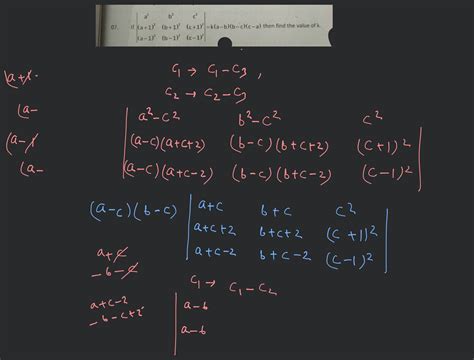 07. If | a² b² c² |
| (a+1)² (b+1)² (c+1)² | = k(a-b)(b-c)(c-a) then find the value of k.
| (a-1)² (b-1)² (c-1)² |
C₁ → C₁ - C₃ ,
C₂ → C₂ - C₃
a+1
(a-
(a-1
(a-
| a²-c² b²-c² c² |
| (a-c)(a+c+2) (b-c)(b+c+2) (c+1)² |
| (a-c)(a+c-2) (b-c)(b+c-2) (c-1)² |
(a-c)(b-c) | a+c b+c c² |
| a+c+2 b+c+2 (c+1)² |
| a+c-2 b+c-2 (c-1)² |
a+c
-b-c
a+c-2
-b-c+2
C₁ → C₁ - C₂
| a-b
| a-b